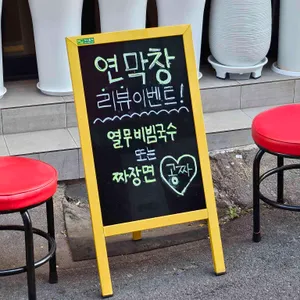 연막창
리뷰이벤트!
열무비빔국수
또는
짜장면 공짜